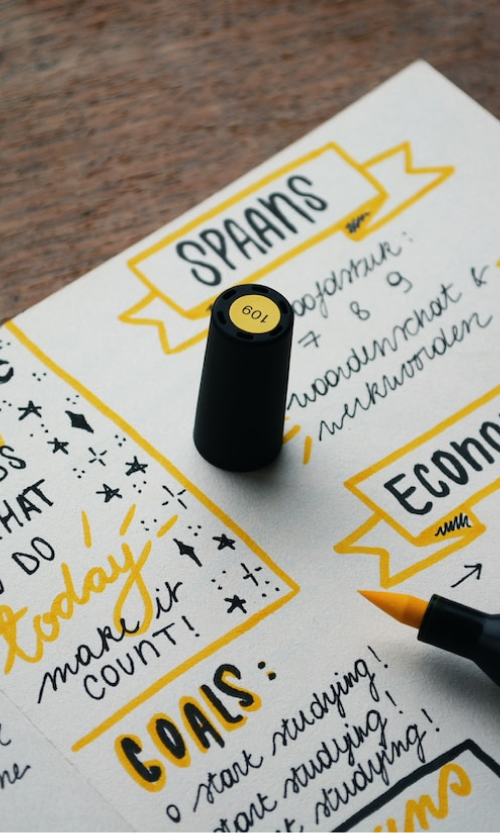 SPAANS
hoofdstuk:
7 8 9
woordenschat &
werkwoorden
109
HAT
DO
today
make it
COUNT!
GOALS:
o start studying!
start studying!
studying!